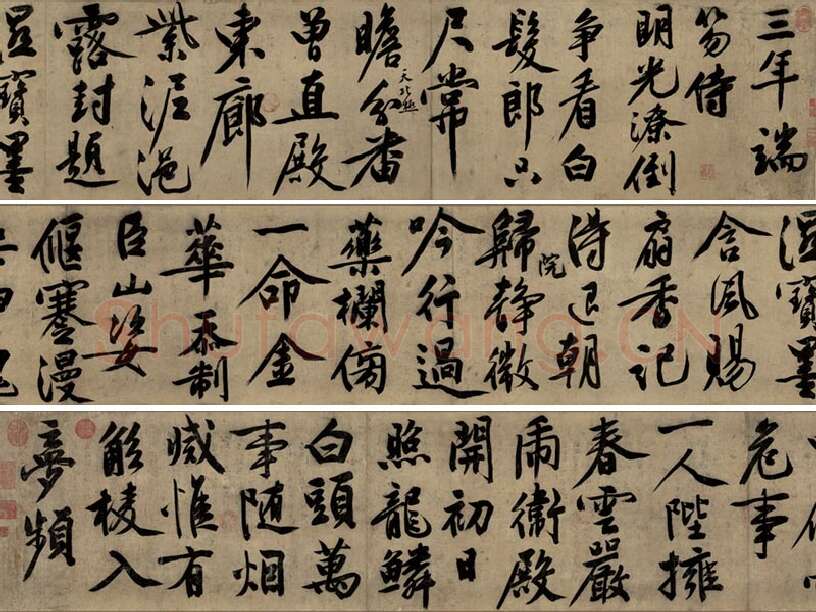 三年端
笏侍
明光潦倒
争看白
髮郎只
尺常
瞻天北極分番
曾直殿
東廊
紫泥浥
露封題
湿寶墨
湿寶墨
含風賜
扇香記
得退朝
歸院静微
吟行過
藥欄傍
一命金
華忝制
臣山姿
偃蹇漫
危事
一人陛擁
春雲嚴
虎衛殿
開初日
照龍鱗
白頭萬
事随烟
滅惟有
觚棱入
夢頻
Shufawang.CN